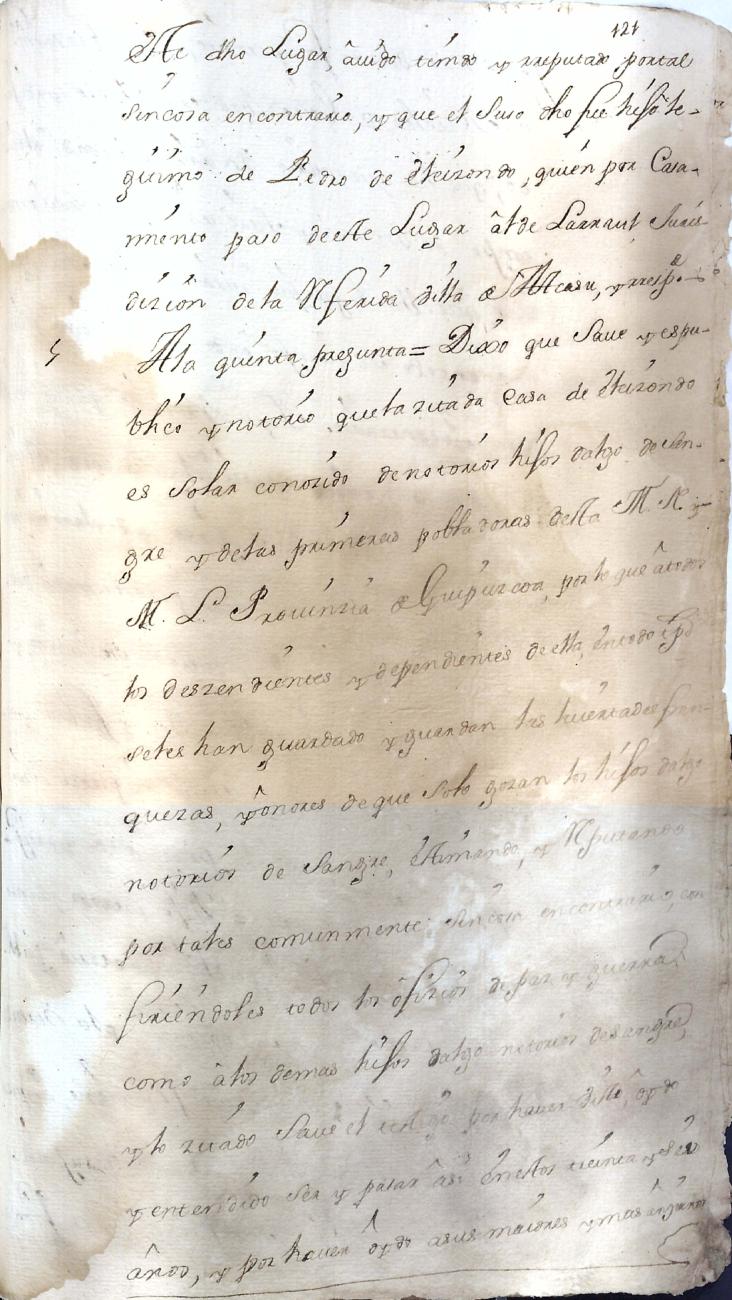 121
Ste dho Lugar, âuido tenido y rreputado portal
sincosa encontrario, y que el suso dho fue hiso le-
gitimo de Pedro de Eleizondo, quien por Casa-
miento paso deste Lugar âl de Larraul Juris
dizion dela Rferida villa de Asteasu, y rresp.de
5 Ala quinta pregunta = Dixo que save y es pu-
blico y notorio quela zitada Casa de Eleizondo
es solar conozido denotorios hisos dalgo de san-
gre y delas primeras pobladoras desta M. N. y
M. L. Provinzia de Guipuzcoa, por lo que âtodos
los deszendientes y dependientes de ella, entodo tpo
seles han guardado y guardan las livertades fran-
quezas, y ônores de que solo gozan los hisos dalgo
notorios de sangre, estimando, y Rputando
por tales comunmente sincosa encontrario, con
firiendoles todos los ôfizios de paz y guerra
como âlos demas hisos dalgo notorios de sangre,
y lo zitado save el testigo por haver visto, oydo
y entendido ser y pasar âsi enestos treinta y seis
âños, y por haver ôydo asus maiores y mas anzianos